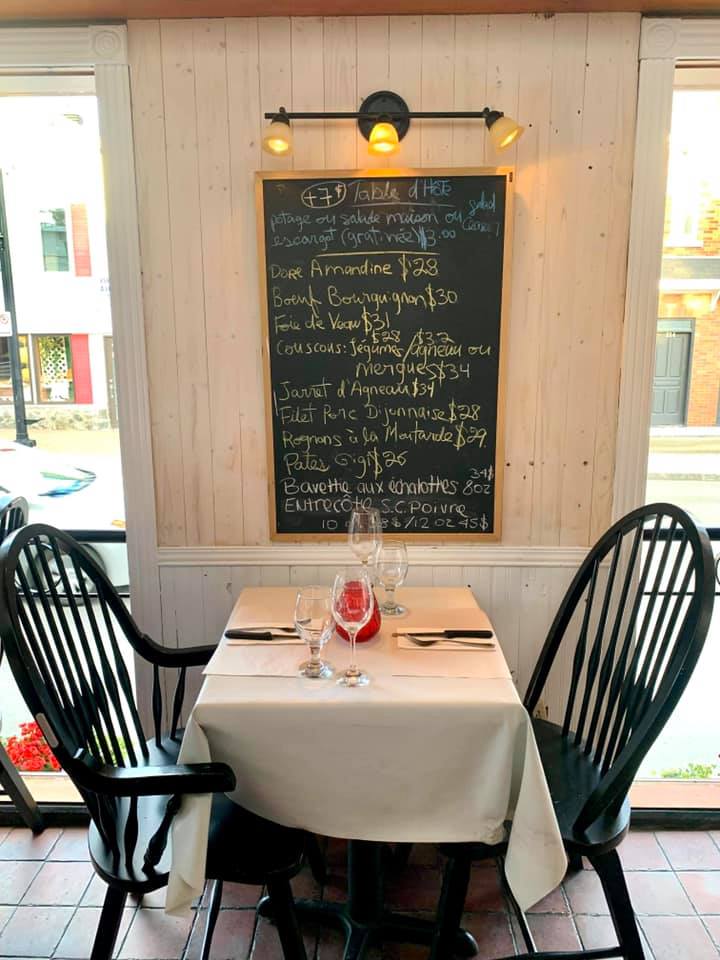 +7$ Table d'Hôte
potage ou salade maison ou salad
escargot (gratinée) $3.00
Doré Amandine $28
Boeuf Bourguignon $30
Foie de Veau $31
$28 $32
Couscous: légumes/Agneau ou
Merguez $34
Jarret d'Agneau $34
Filet Porc Dijonnaise $28
Rognons à la Moutarde $29
Pates Gigi $26
34$
Bavette aux échalottes 8oz
Entrecôte S.C. Poivre
10 $/12 oz 45$